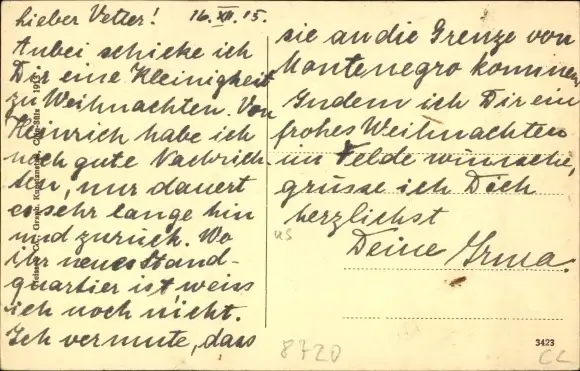 lieber Vetter! 16. XII. 15.
Anbei schicke ich
Dir eine Kleinigkeit
zu Weihnachten. Von
Heinrich habe ich
noch gute Nachrich-
ten, nur dauert
es sehr lange hin
und zurück. Wo
ihr neues Stand-
quartier ist weiss
ich noch nicht.
Ich vermute, dass
sie an die Grenze von
Montenegro kommen
Indem ich Dir ein
frohes Weihnachten
im Felde wünsche,
grüsse ich Dich
herzlichst
Deine Irma.
us
8720
3423
CL